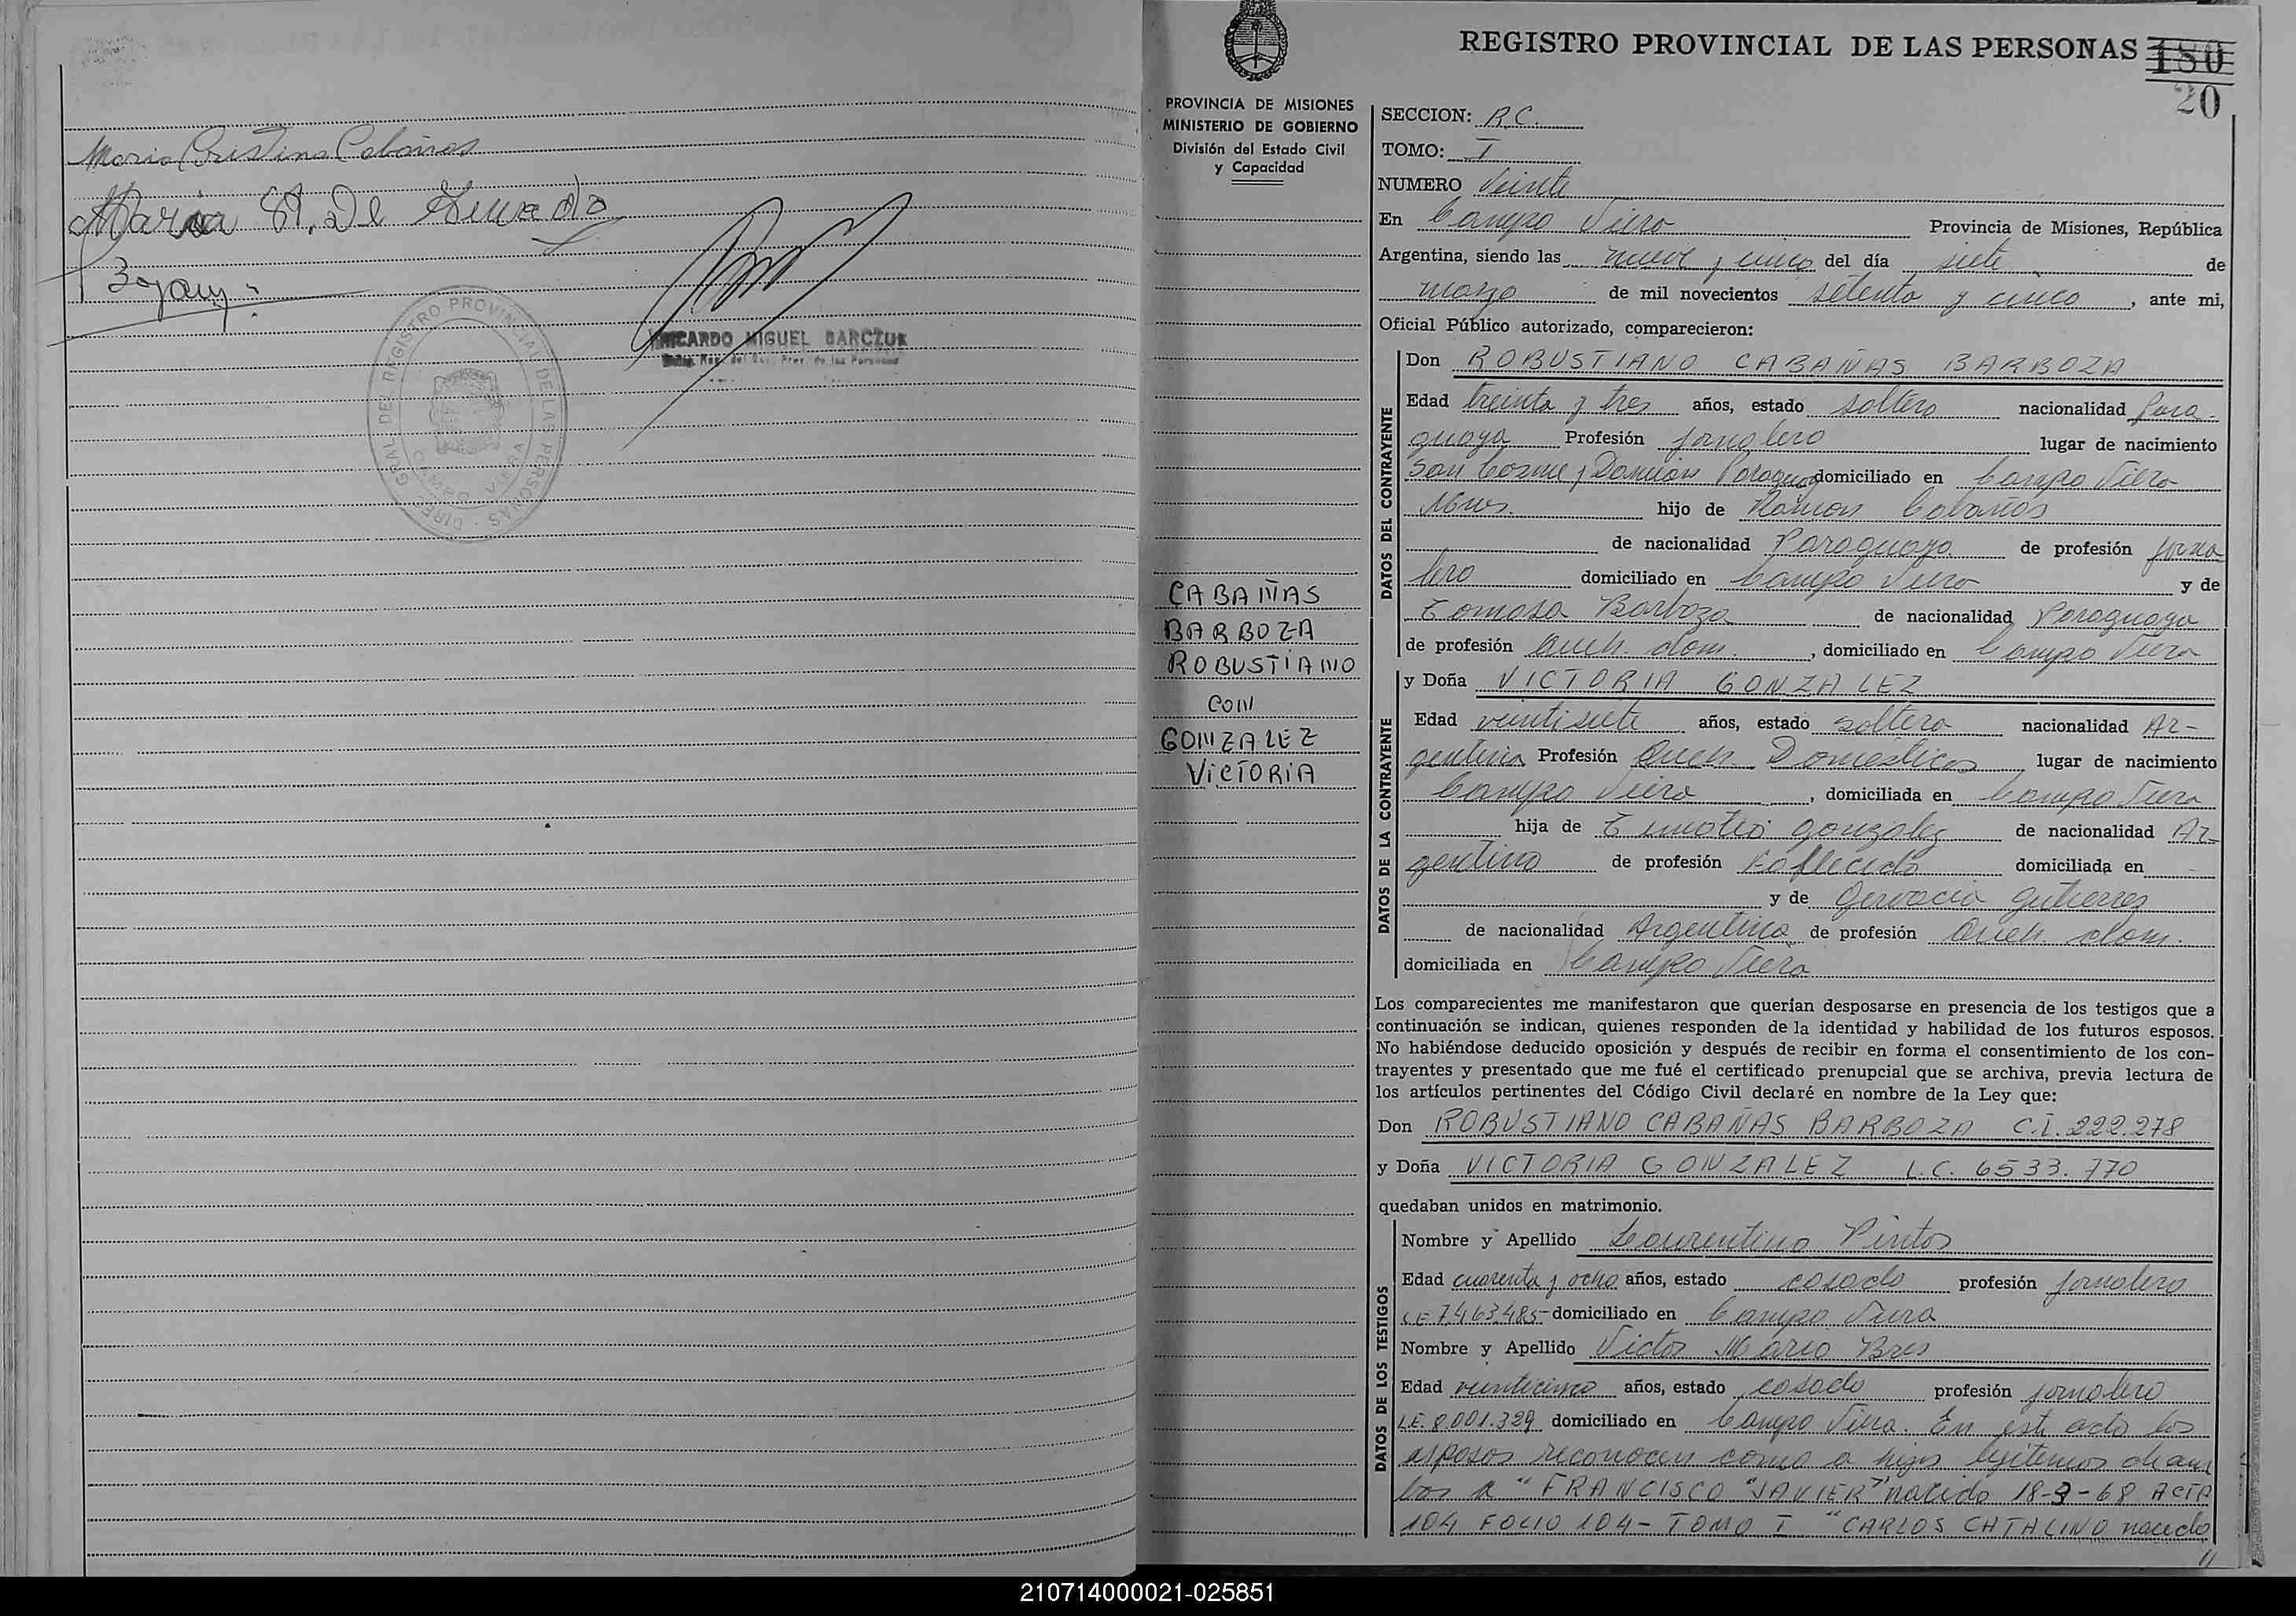 Maria Cristina Cabañas
Maria A. De
RICARDO MIGUEL BARCZUK
DIREC. GRAL DEL REGISTRO PROVINCIAL DE LAS PERSONAS
CAMPO VIERA
REGISTRO PROVINCIAL DE LAS PERSONAS 180
20
PROVINCIA DE MISIONES
MINISTERIO DE GOBIERNO
División del Estado Civil
y Capacidad
CABAÑAS
BARBOZA
ROBUSTIANO
CON
GONZALEZ
VICTORIA
SECCION: R.C.
TOMO: I
NUMERO Veinte
En Campo Viera Provincia de Misiones, República
Argentina, siendo las nueve y cinco del día siete de
marzo de mil novecientos setenta y cinco, ante mi,
Oficial Público autorizado, comparecieron:
DATOS DEL CONTRAYENTE
Don ROBUSTIANO CABAÑAS BARBOZA
Edad treinta y tres años, estado soltero nacionalidad Para-
guaya Profesión jornalero lugar de nacimiento
San Cosme y Damian Paraguay domiciliado en Campo Viera
Mnes. hijo de Ramon Cabañas
de nacionalidad Paraguaya de profesión jorna
lero domiciliado en Campo Viera y de
Tomasa Barboza de nacionalidad Paraguaya
de profesión Queh. dom. , domiciliado en Campo Viera
DATOS DE LA CONTRAYENTE
y Doña VICTORIA GONZALEZ
Edad veintisiete años, estado soltera nacionalidad Ar-
gentina Profesión Queh. Domesticos lugar de nacimiento
Campo Viera , domiciliada en Campo Viera
hija de Timoteo Gonzalez de nacionalidad Ar-
gentino de profesión Fallecido domiciliada en
y de Gervacia Gutierrez
de nacionalidad Argentina de profesión Queh. dom.
domiciliada en Campo Viera
Los comparecientes me manifestaron que querían desposarse en presencia de los testigos que a
continuación se indican, quienes responden de la identidad y habilidad de los futuros esposos.
No habiéndose deducido oposición y después de recibir en forma el consentimiento de los con-
trayentes y presentado que me fué el certificado prenupcial que se archiva, previa lectura de
los artículos pertinentes del Código Civil declaré en nombre de la Ley que:
Don ROBUSTIANO CABAÑAS BARBOZA C.I. 222.278
y Doña VICTORIA GONZALEZ L.C. 6533.770
quedaban unidos en matrimonio.
DATOS DE LOS TESTIGOS
Nombre y Apellido Laurentino Pintos
Edad cuarenta y ocho años, estado casado profesión jornalero
LE 7.463.485- domiciliado en Campo Viera
Nombre y Apellido Victor Mario Bres
Edad veinticinco años, estado casado profesión jornalero
L.E. 8.001.329 domiciliado en Campo Viera. En este acto los
esposos reconocen como a hijos legitimos de am
bos a "FRANCISCO "JAVIER" nacido 18-3-68 ACTA
104 FOLIO 104- TOMO I "CARLOS CATALINO nacido
//
210714000021-025851